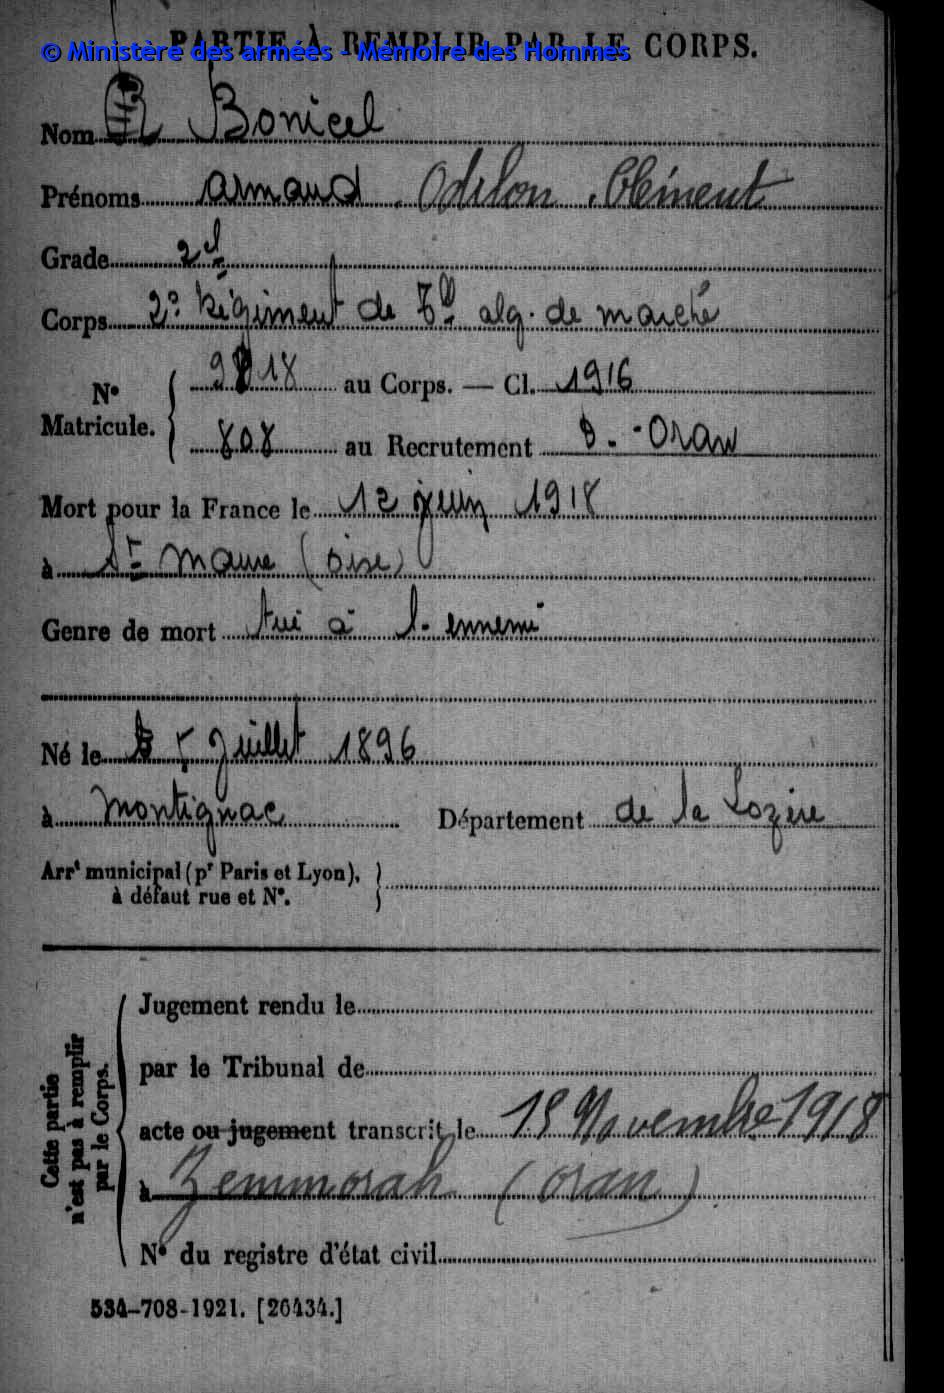 PARTIE À REMPLIR PAR LE CORPS.
© Ministère des armées - Mémoire des Hommes
Nom Bonicel
Prénoms Armand Odilon Clément
Grade 2 cl
Corps 2e Régiment de Tll alg. de marche
No Matricule. 9818 au Corps. — Cl. 1916
808 au Recrutement Oran
Mort pour la France le 12 juin 1918
à St Maur (Oise)
Genre de mort tué à l'ennemi
Né le 5 Juillet 1896
à Montignac Département de la Lozère
Arrt municipal (pr Paris et Lyon), à défaut rue et No.
Cette partie n'est pas à remplir par le Corps.
Jugement rendu le
par le Tribunal de
acte ou jugement transcrit le 15 Novembre 1918
à Zemmorah (Oran)
No du registre d'état civil
534-708-1921. [26434.]